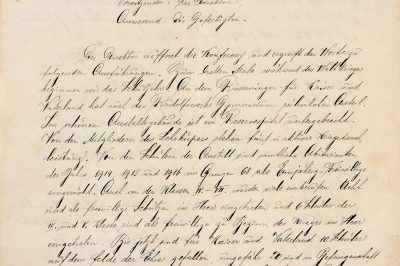 Vorsitzender: Der Direktor
Anwesend: Die Gefertigten.
Der Direktor eröffnet die Konferenz und ergreift das Wort zu
folgenden Ausführungen. Zum dritten Male während des Weltkrieges
beginnen wir das Schuljahr. An dem Ringen für Kaiser und
Vaterland hat auch das Gymnasium rühmlichen Anteil.
Im schönen Anstaltsgebäude ist ein Reservespital untergebracht.
Von den Mitgliedern des Lehrkörpers stehen fünf in aktiver Kriegsdienst-
leistung. Von den Schülern der Anstalt sind sämtliche
der Jahre 1914 1915 und 1916 im Ganzen 61 als Einjährig-Freiwillige
eingerückt. Auch von den Klassen V.-VII. wurden viele einberufen. Acht
sind als freiwillige Schützen ins Heer eingetreten und 6 Schüler der
und V. Klasse sind als freiwillige zu Beginn des Krieges ins Heer
eingetreten. Bis jetzt sind für Kaiser und Vaterland 10 Schüler
auf dem Felde der Ehre gefallen, ungefähr 20 sind in Gefangenschaft